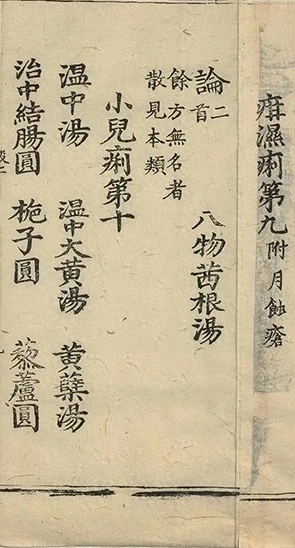 疳濕痢第九附月蝕瘡
論二首 八物茜根湯
餘方無名者
散見本類
小兒痢第十
温中湯 温中大黄湯 黄蘗湯
治中結腸圓 梔子圓 藜蘆圓